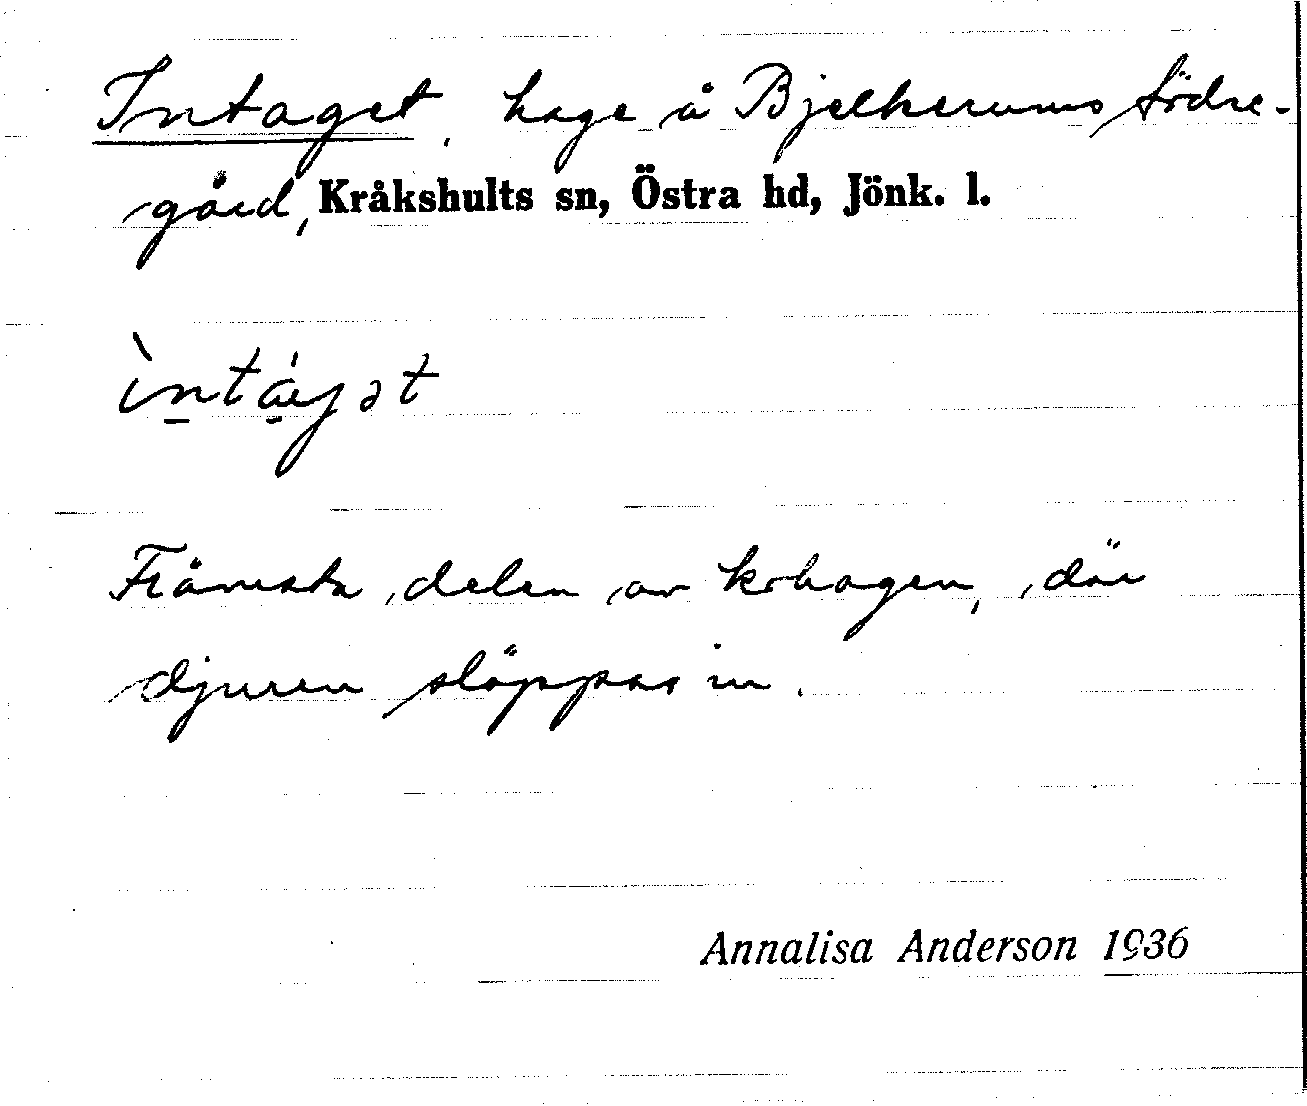 Intaget, hage å Bjelkerums södre-
gård, Kråkshults sn, Östra hd, Jönk. l.
ìntáɡət
Främsta delen av kohagen, där
djuren släppas in.
Annalisa Anderson 1936